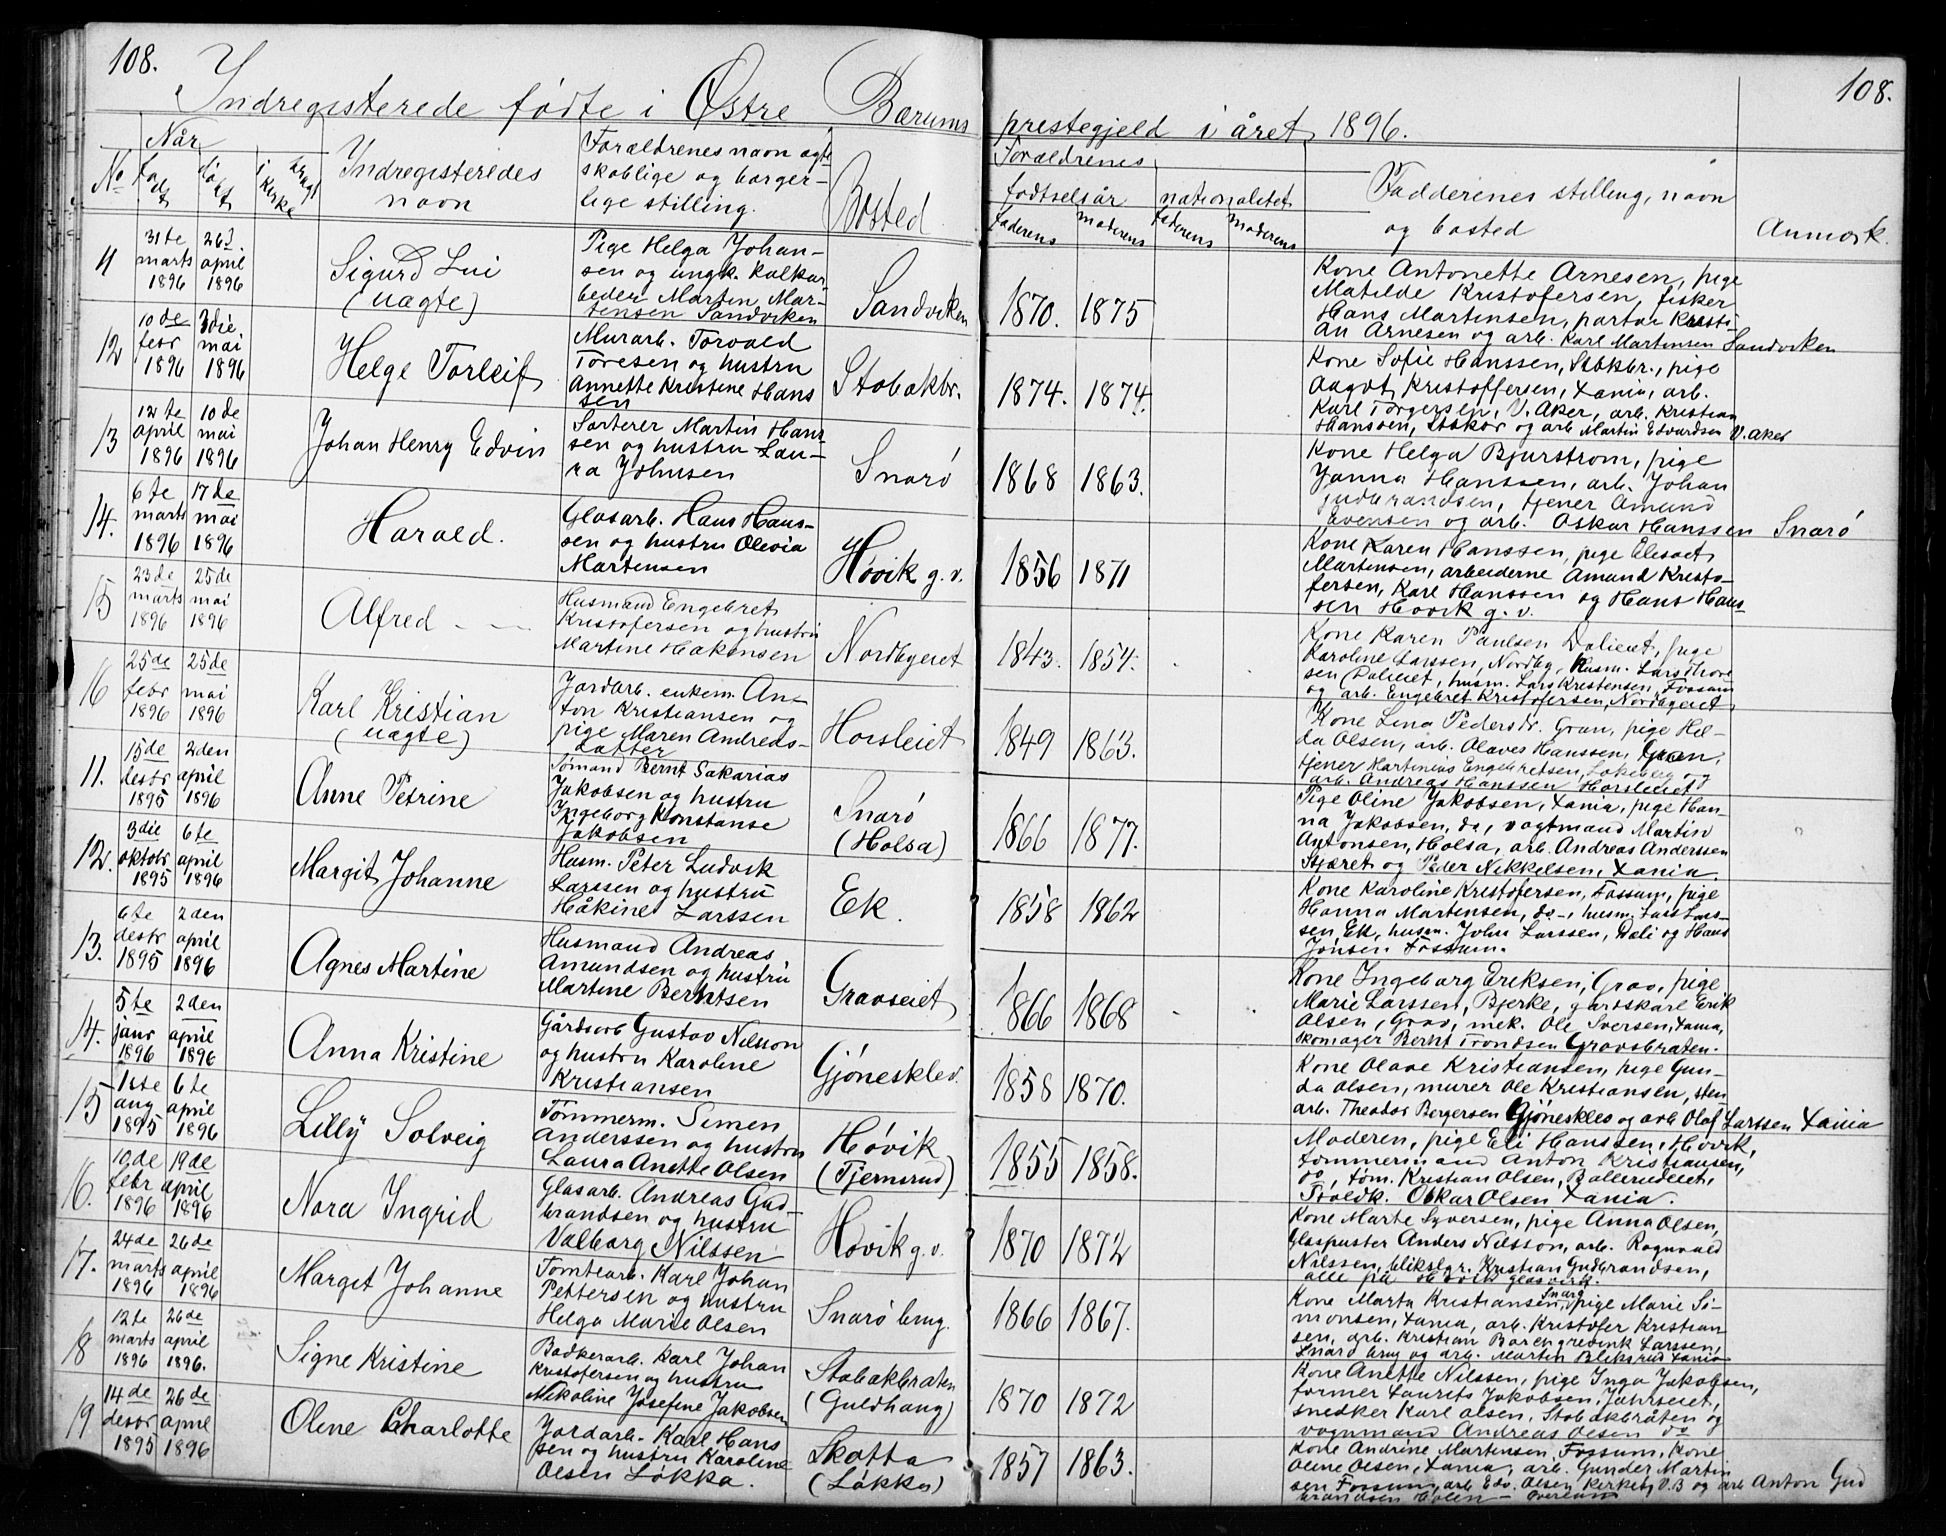 108.
108.
Indregisterede fødte i Østre Bærums prestegjeld i året 1896.
No
Når
født
døbt
i kirke
bragt
Indregisteredes navn
Forældrenes navn ægte
skablige og borger-
lige stilling.
Bosted
Forældrenes
fødtselsår
nationalitet
faderens
moderens
faderens
moderens
Fadderenes stilling, navn
og bosted
Anmærk.
11
31te marts 1896
26d. april 1896
Sigurd Lui
(uægte)
Pige Helga Johan-
sen og ungk. Kalkar-
beder Martin Mar-
tensen Sandviken
Sandviken
1870.
1875
Kone Antonette Arnesen, pige
Matilde Kristofersen, fisker
Hans Martinsen, Kristi-
an Arnesen og arb. Karl Martensen Sandviken
12
10de febr 1896
3die mai 1896
Helge Torleif
Murarb. Torvald
Toresen og hustru
Annette Kristine Hans
sen
Stabækbr.
1874.
1874.
Kone Sofie Hanssen, Stbkbr., pige
Aagot Kristoffersen, Xania, arb.
Karl Torgersen, V. Aker, arb. Kristian
Hanssen, og arb Martin Edvardsen V. Aker
13
12te april 1896
10de mai 1896
Johan Henry Edvin
Sorterer Martin Hans-
sen og hustru Lau-
ra Johnsen
Snarø
1868
1863.
Kone Helga Bjurstrom, pige
Janna Hanssen, arb. Johan
Gudbrandsen, tjener Amund
Evensen og arb. Oskar Hanssen Snarø
14.
6te marts 1896
17de mai 1896
Harald.
Glasarb. Hans Hans-
sen og hustru Olevia
Martensen
Høvik g. v.
1856
1871
Kone Karen Hanssen, pige Elisaet
Martensen, arbeiderne Amund Kristo-
fersen, Karl Hanssen og Hans Hans-
sen Høvik g. v.
15
23de marts 1896
25de mai 1896
Alfred
Husmand Engebret
Kristofersen og hustru
Martine Håkonsen
Nordbyeiet
1843.
1854.
Kone Karen Paulsen Dalieiet, pige
Karoline Larssen, Nordby, husm. Lars Thore
sen Dalieiet, husm. Lars Kristensen, Fossum
og arb. Engebret Kristofersen, Nordbyeiet
16
25de febr 1896
25de mai 1896
Karl Kristian
(uægte)
Jordarb. enkem. An-
ton Kristiansen og
pige Maren Andreds-
datter
Horsleiet
1849
1863.
Kone Lina Pedersdr. Gran, pige Hel-
da Olsen, arb. Olaves Hanssen, Gran,
tjener Martinius Engebretsen, Løkeberg og
arb. Andreas Hanssen Horsleiet
11.
15de desbr 1895
2den april 1896
Anne Petrine
Sømand Bernt Sakarias
Jakobsen og hustru
Ingeborg Konstanse
Jakobsen
Snarø
(Holsa)
1866
1877.
Pige Oline Jakobsen, Xania, pige Han-
na Jakobsen, do, vogtmand Martin
Antonsen, Holsa, arb. Andreas Anderssen
Skjæret og Peder Nikkelsen, Xania
12.
3die oktobr 1895
6te april 1896
Margit Johanne
Husm. Peter Ludvik
Larssen og hustru
Håkine Larssen
Ek.
1858
1862
Kone Karoline Kristofersen, Fossum, pige
Hanna Martensen, do-, husm. Lars Lars-
sen Ek, husm. John Larssen, Dæli og Hans
Jonsen Fossum.
13.
6te desbr 1895
2den april 1896
Agnes Martine
Husmand Andreas
Amundsen og hustru
Martine Berntsen
Gravseiet
1866
1868
Kone Ingeborg Eriksen, Grav, pige
Marie Larssen, Bjerke, gårdskarl Erik
Olsen, Grav, mek. Ole Iversen, Xania,
skomager Bernt Trondsen Gravsbråten.
14.
5te janr 1896
2den april 1896
Anna Kristine
Gårdsarb Gustav Nilsson
og hustru Karoline
Kristiansen
Gjønesklev.
1858
1870.
Kone Olave Kristiansen, pige Gun-
da Olsen, murer Ole Kristiansen, sten
arb. Theodor Bergersen Gjøneskles og arb Olaf Larssen Xania
15
1ste aug 1895
6te april 1896
Lilly Solveig
Tømmerm. Simen
Anderssen og hustru
Laura Anette Olsen
Høvik
(Tjernsrud)
1855
1858.
Moderen, pige Eli Hanssen, Høvik,
tømmermand Anton Kristiansen,
do, tøm. Kristian Olsen, Ballerudeiet,
Oskar Olsen Xania.
16.
10de febr 1896
19de april 1896
Nora Ingrid
Glasarb. Andreas Gud-
brandsen og hustru
Valborg Nilssen
Høvik g. v.
1870
1872
Kone Marte Syversen, pige Anna Olsen,
Glaspuster Anders Nilsson, arb. Ragnvald
Nilssen, blikslgr. Kristian Gudbrandsen,
alle på Høvik glasverk.
17.
24de marts 1896
26de april 1896
Margit Johanne
Tomtearb. Karl Johan
Pettersen og hustru
Helga Marie Olsen
Snarø brug.
1866
1867.
Kone Marta Kristiansen, Snarø, pige Marie Si-
monsen, Xania, arb. Kristofer Kristian-
sen, arb. Kristian Larssen,
Snarø brug og arb. Martin Bliksrud Xania
18
12te marts 1896
26de april 1896.
Signe Kristine
Badkerarb. Karl Johan
Kristofersen og hustru
Nikoline Josefine Jakobsen
Stabækbraten
(Guldhaug)
1870
1872
Kone Anette Nilssen, pige Inga Jakobsen,
former Laurits Jakobsen, Jahrseiet,
snedker Karl Olsen, Stabækbråten og
vognmand Andreas Olsen do
19
14de desbr 1895
26de april 1896
Oline Charlotte
Jordarb. Karl Hans
sen og hustru Karoline
Olsen Løkka.
Skotta
(Løkka)
1857
1863.
Kone Andrine Martensen, Fossum, kone
Oline Olsen, Xania, arb. Gunder Martin
sen Fossum, arb. Edv. Olsen Kirkeby V. B og arb Anton Gud
brandsen Holen - Overlund